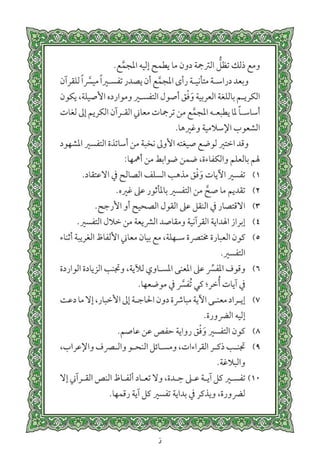 ومع ذلك تظلُّ الترجمة دون ما يطمح إليه المجمَّع.
وبعد دراسة متأنية رأى المجمَّع أن يصدر تفسيراً ميسَّراً للقرآن
الكريم باللغة العربية وَفْق أصول التفسير وموارده الأصيلة، يكون
أساساً لما يطبعه المجمَّع من ترجمات معاني القرآن الكريم إلى لغات
الشعوب الإسلامية وغيرها.
وقد اختير لوضع صيغته الأولى نخبة من أساتذة التفسير المشهود
لهم بالعلم والكفاءة، ضمن ضوابط من أهمها:
١) تفسير الآيات وَفْق مذهب السلف الصالح في الاعتقاد.
٢) تقديم ما صحَّ من التفسير بالمأثور على غيره.
٣) الاقتصار في النقل على القول الصحيح أو الأرجح.
٤) إبراز الهداية القرآنية ومقاصد الشريعة من خلال التفسير.
٥) كون العبارة مختصرة سهلة، مع بيان معاني الألفاظ الغريبة أثناء
التفسير.
٦) وقوف المفسِّر على المعنى المساوي للآية، وتجنب الزيادة الواردة
في آيات أُخر؛ كي تُفسَّر في موضعها.
٧) إيراد معنى الآية مباشرة دون الحاجة إلى الأخبار، إلا ما دعت
إليه الضرورة.
٨) كون التفسير وَفْق رواية حفص عن عاصم.
٩) تجنب ذكر القراءات، ومسائل النحو والصرف والإعراب،
والبلاغة.
١٠) تفسير كل آية على حدة، ولا تعاد ألفاظ النص القرآني إلا
لضرورة، ويذكر في بداية تفسير كل آية رقمها.